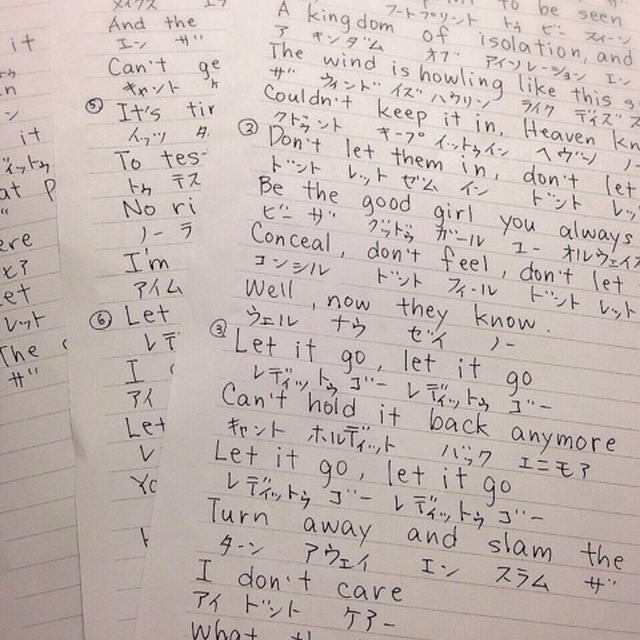 it
it
at
ere
et
レット
The
ザ
And the
エン ザ
Can't ge
キャント
⑤ It's tir
イッツ タ
To tes
トゥ テス
No ri
ノー ラ
I'm
アイム
⑥ Let
レデ
I
アイ
Let
レ
Yo
to be seen
フートプリント トゥ ビー スィーン
A kingdom of isolation, and
ア キンダム オブ アイソレーション エン
The wind is howling like this s
ザ ウィンド イズ ハウリン ライク ディズ ス
Couldn't keep it in, Heaven kn
クドゥント キープ イットゥイン ヘヴン ノー
② Don't let them in, don't let
ドント レット ゼム イン ドント レッ
Be the good girl you always
ビー ザ グッドゥ ガール ユー オルウェイズ
Conceal, don't feel, don't let
コンシル ドント フィール ドント レット
Well, now they know.
ウェル ナウ ゼイ ノー
③ Let it go, let it go
レディットゥ ゴー レディットゥ ゴー
Can't hold it back anymore
キャント ホルディット バック エニモア
Let it go, let it go
レディットゥ ゴー レディットゥ ゴー
Turn away and slam the
ターン アウェイ エン スラム ザ
I don't care
アイ ドント ケアー
What